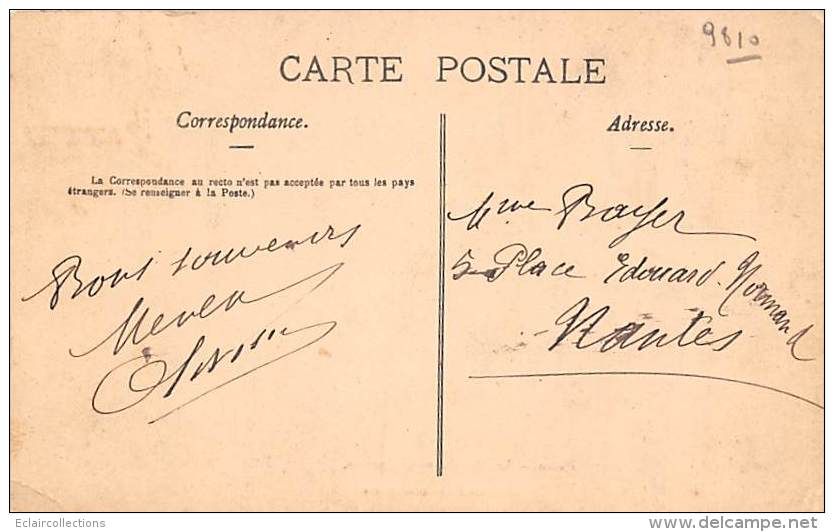 9810
CARTE POSTALE
Correspondance.
Adresse.
La Correspondance au recto n'est pas acceptée par tous les pays
étrangers. (Se renseigner à la Poste.)
Bons souvenirs
Mme
5 Place Edouard Normand
Nantes
Eclaircollections
www.delcampe.net